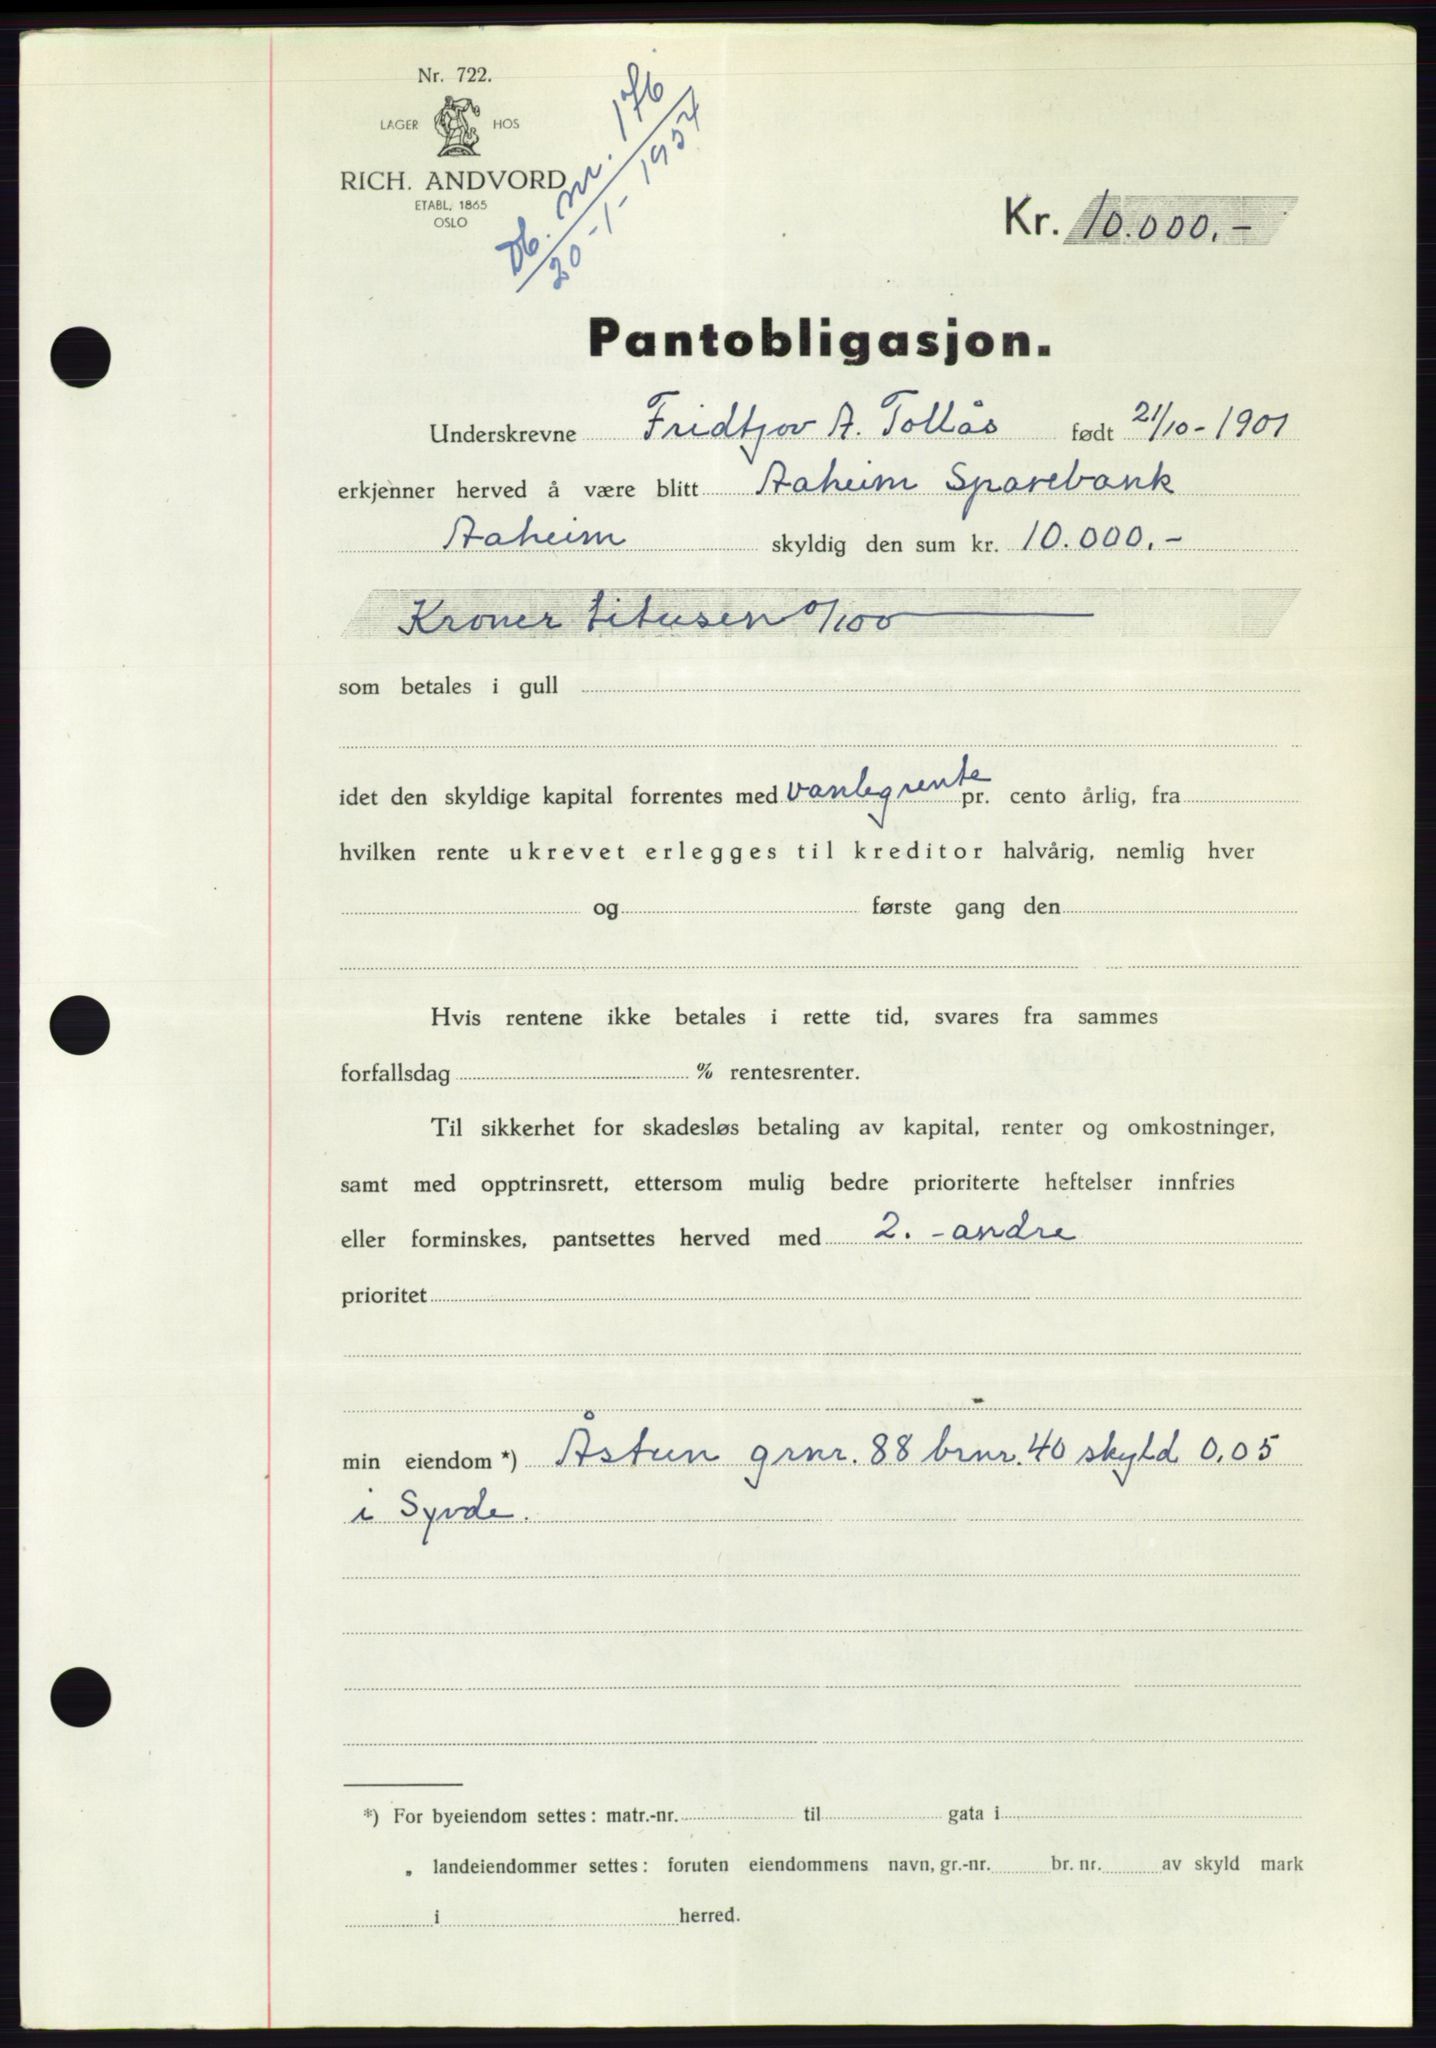 Nr. 722.
LAGER HOS
RICH. ANDVORD
ETABL. 1865
OSLO
Db. nr. 176
20-1-1954
Kr. 10.000.-
Pantobligasjon.
Underskrevne Fridtjov A. Tollås født 21/10-1901
erkjenner herved å være blitt Aaheim Sparebank
Aaheim skyldig den sum kr. 10.000.-
Kroner titusen 0/100
som betales i gull
idet den skyldige kapital forrentes med vanleg rente pr. cento årlig, fra
hvilken rente ukrevet erlegges til kreditor halvårig, nemlig hver
og første gang den
Hvis rentene ikke betales i rette tid, svares fra sammes
forfallsdag % rentesrenter.
Til sikkerhet for skadesløs betaling av kapital, renter og omkostninger,
samt med opptrinsrett, ettersom mulig bedre prioriterte heftelser innfries
eller forminskes, pantsettes herved med 2. - andre
prioritet
min eiendom *) Åstun grnr. 88 brnr. 40 skyld 0,05
i Syvde.
*) For byeiendom settes: matr.-nr. til gata i
„ landeiendommer settes: foruten eiendommens navn, gr.-nr. br. nr. av skyld mark
i herred.